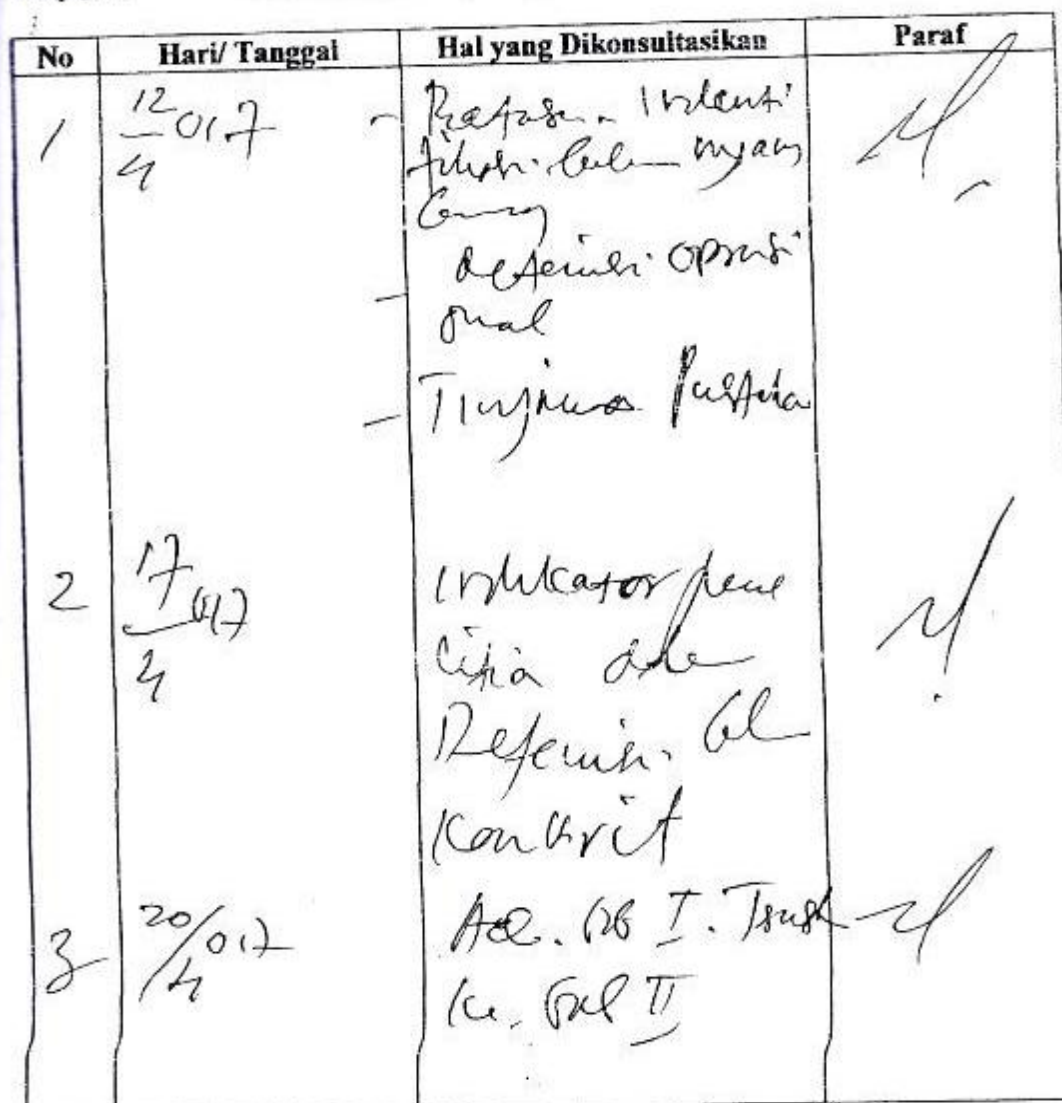 No Hari/ Tanggal Hal yang Dikonsultasikan Paraf
1 12/4 017 - Batasan Indenti
fikasi belum nyam
bung
- defenisi oprasi
onal
- Tinjauan Pustaka
2 17/4 017 Indikator pene
litian dan
Defenisi bl
Konkrit
3 20/4 017 Acc. Bab I. Trush
ke. Bab II